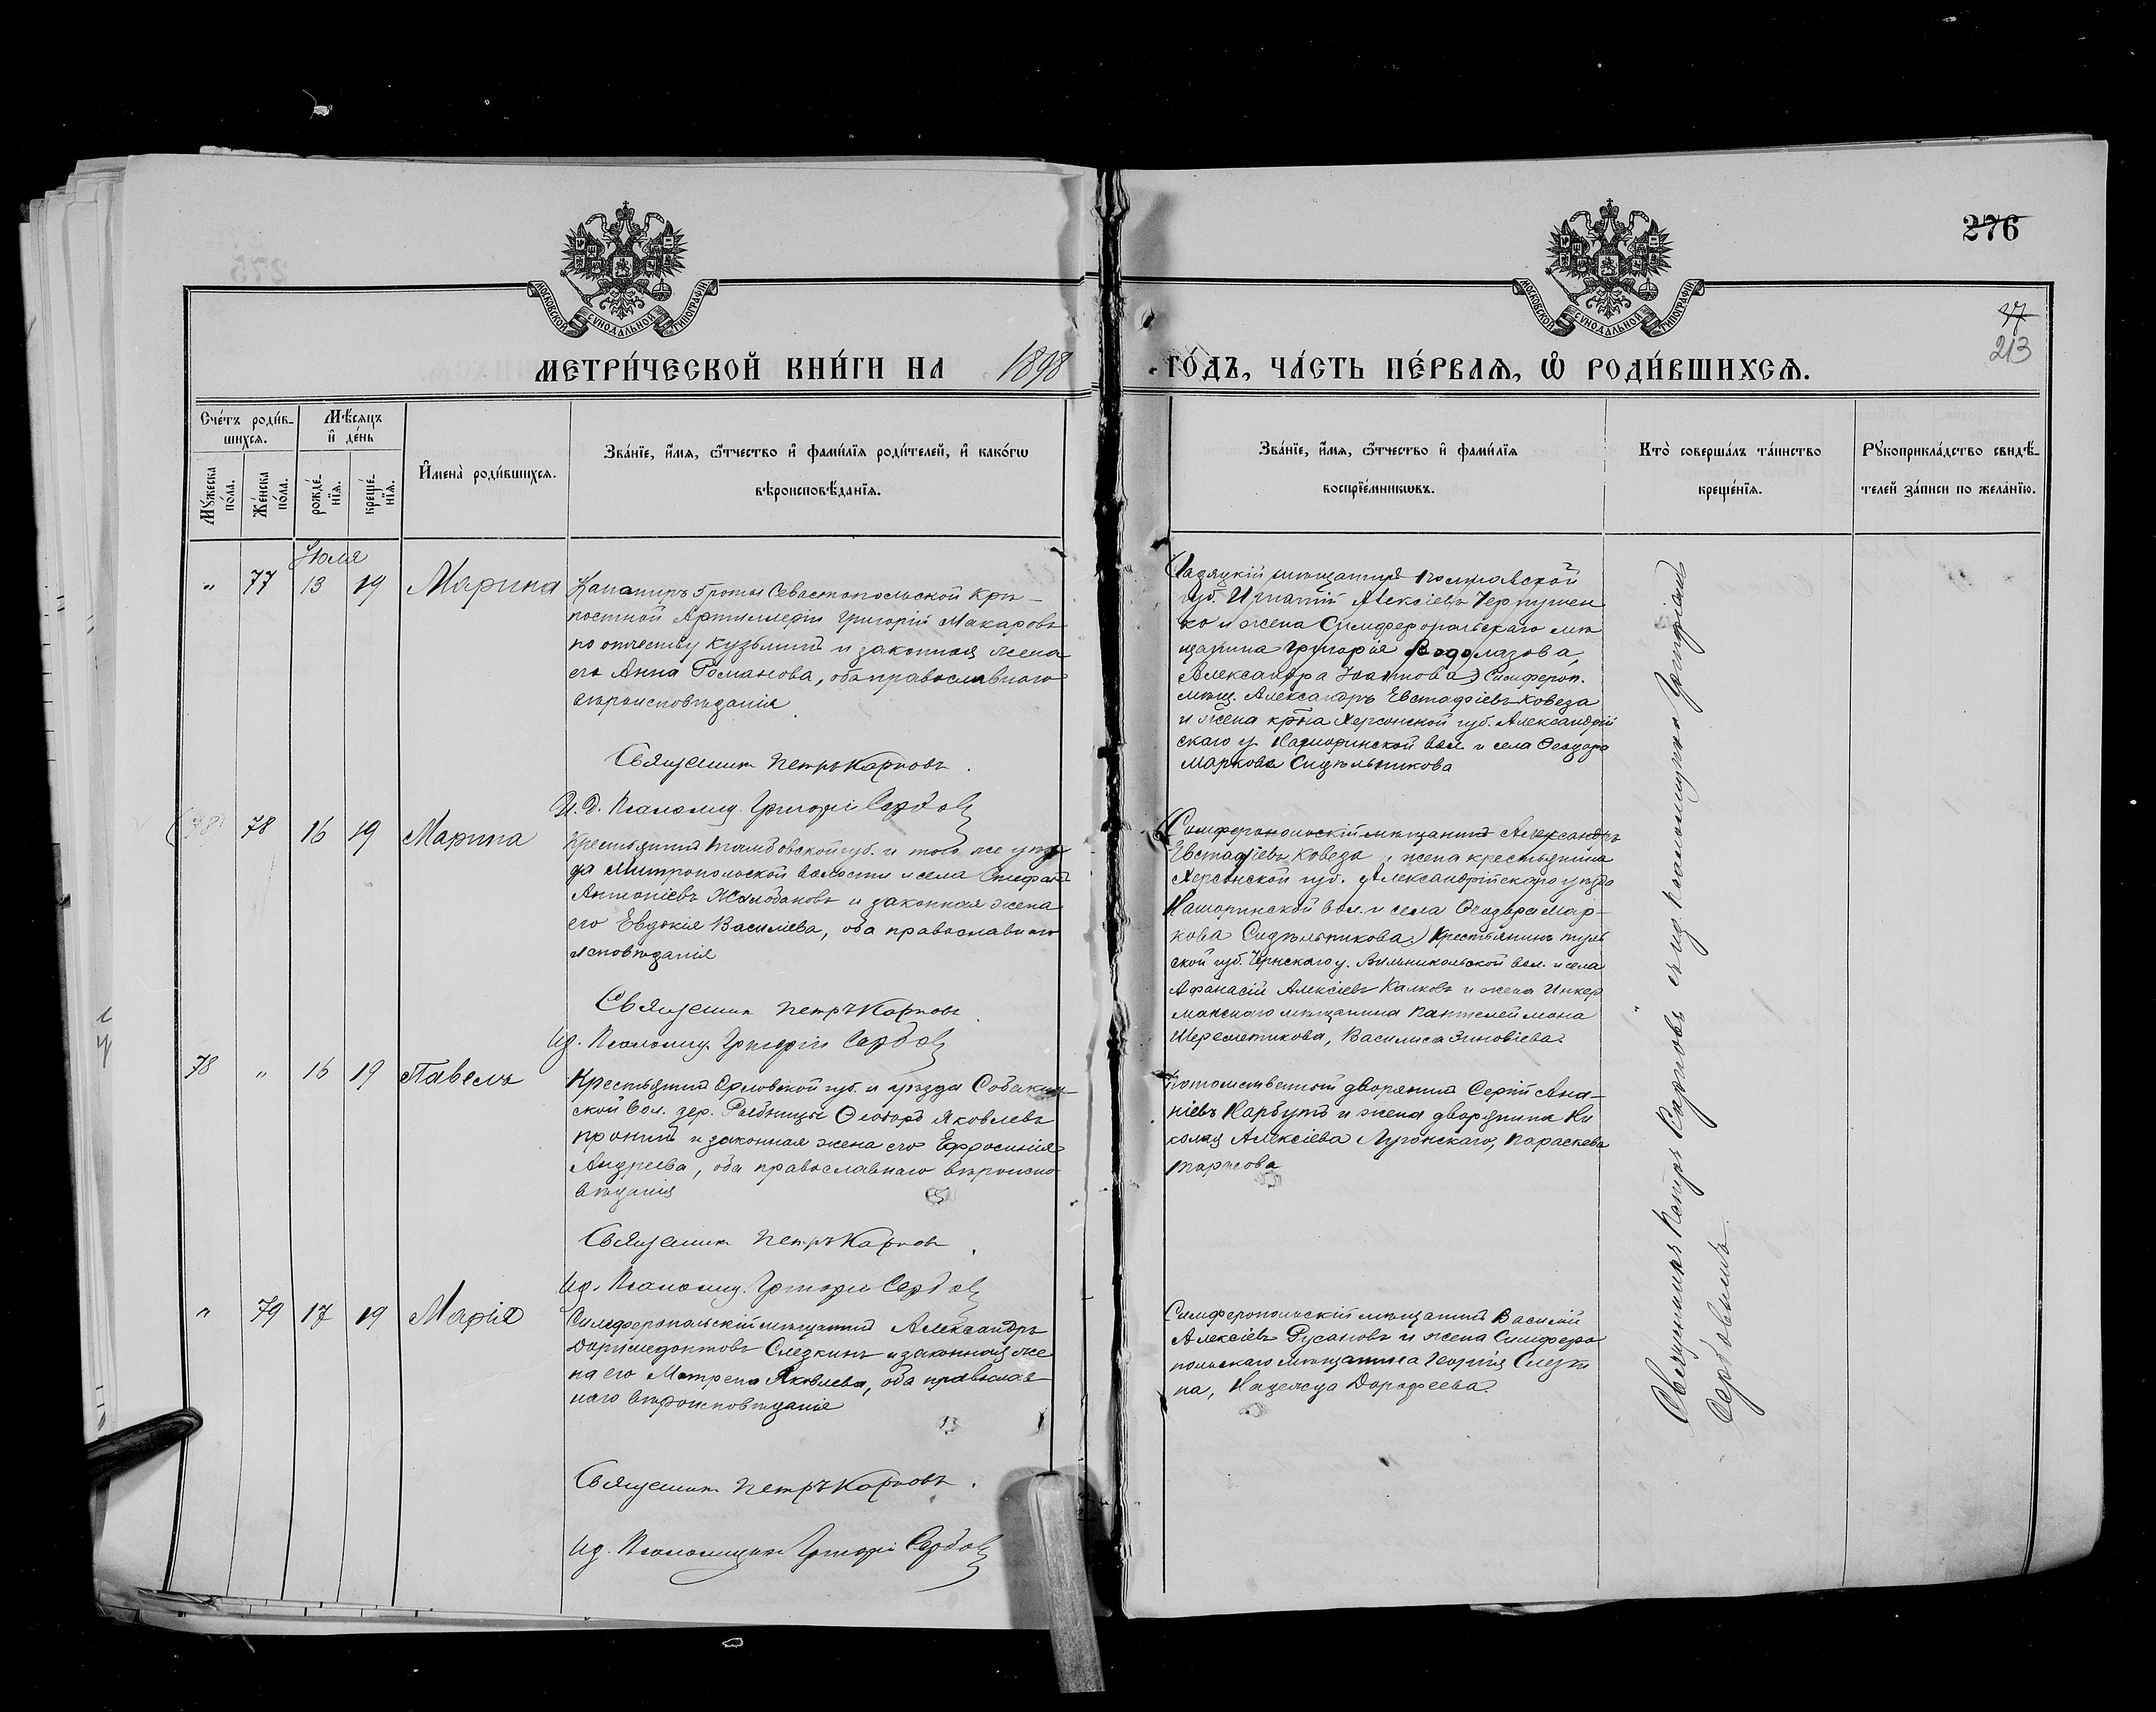 276
77
213
МОСКОВСКОЙ СѴНОДАЛЬНОЙ ТИПОГРАФІИ
МОСКОВСКОЙ СѴНОДАЛЬНОЙ ТИПОГРАФІИ
МЕТРИ́ЧЕСКОЙ КНИ́ГИ НА 1898 ГО́ДЪ, ЧА́СТЬ ПЕ́РВАѦ, Ѽ РОДИ́ВШИХСѦ.
Сче́тъ роди́в-
шихсѧ.
Мꙋ́жеска
по́ла.
Же́нска
по́ла.
Мѣ́сѧцъ
и҆ де́нь
рожде́-
нїѧ.
креще́-
нїѧ.
И҆мена̀ роди́вшихсѧ.
Зва́нїе, и҆́мѧ, ѻ҆́тчество и҆ фами́лїѧ роди́телей, и҆ како́гѡ
вѣроисповѣ́данїѧ.
Зва́нїе, и҆́мѧ, ѻ҆́тчество и҆ фами́лїѧ
воспрїе́мникѡвъ.
Кто̀ соверша́лъ та́инство
креще́нїѧ.
Рꙋкоприкла́дство свидѣ́-
телей за́писи по жела́нїю.
Іюля
" 77 13 19 Марина
Капониръ 5 роты Севастопольской Крѣ-
постной Артиллеріи Григорій Макаровъ
по отчеству Кузьминъ и законная жена
его Анна Романова, оба православнаго
вѣроисповѣданія
Священник Петръ Карповъ.
И. д. Псаломщ. Григорій Сербовъ
Гадяцкій мѣщанинъ Полтавской
губ. Игнатій Алексіевъ Черпушен
ко и жена Симферопольскаго мѣ
щанина Григорія Водолазова,
Александра Іоаннова) Симфероп.
мѣщ. Александръ Евстафіевъ Ковеза
и жена кр-на Херсонской губ. Александрій
скаго у. Нашоринской вол. и села Ѳеодора
Маркова Сидѣльникова
78 16 19 Марина
Крестьянинъ Тамбовской губ. и того же уѣз
да Митропольской волости и села Стефанъ
Антоніевъ Жалобановъ и законная жена
его Евдокія Василіева, оба православнаго
исповѣданія
Священник Петръ Карповъ.
И.д. Псаломщ. Григорій Сербовъ
Симферопольскій мѣщанинъ Александръ
Евстафіевъ Ковеза и жена крестьянина
Херсонской губ. Александрійскаго уѣзда
Нашоринской вол. и села Ѳеодора Мар-
кова Сидѣльникова) Крестьянинъ Туль
ской губ. Чернскаго у. Вильникольской вол. и села
Афанасій Алексіевъ Калковъ и жена Инкер
манскаго мѣщанина Пантелеймона
Шереметикова, Василиса Зиновіева.
78 " 16 19 Павелъ
Крестьянинъ Орловской губ. и уѣзда Собакин-
ской вол. дер. Рыбницы Ѳеодоръ Яковлевъ
Пронинъ и законная жена его Ефросинія
Андреева, оба православнаго вѣроиспо
вѣданія
Священник Петръ Карповъ.
И.д. Псаломщ. Григорій Сербовъ
Потомственный дворянинъ Сергій Ана-
ніевъ Нарбутъ и жена дворянина Ни
колая Алексіева Лугонскаго, Параскева
Тарасова
" 79 17 19 Марія
Симферопольскій мѣщанинъ Александръ
Доримедонтовъ Слезкинъ и законная же
на его Матрена Яковлева, оба православ
наго вѣроисповѣданія
Священник Петръ Карповъ.
И.д. Псаломщик Григорій Сербовъ
Симферопольскій мѣщанинъ Василій
Алексіевъ Русановъ и жена Симферо
польскаго мѣщанина Георгія Слезки
на, Надежда Дорофеева.
Священникъ Петръ Карповъ съ и.д. псаломщика Григоріемъ
Сербовымъ.